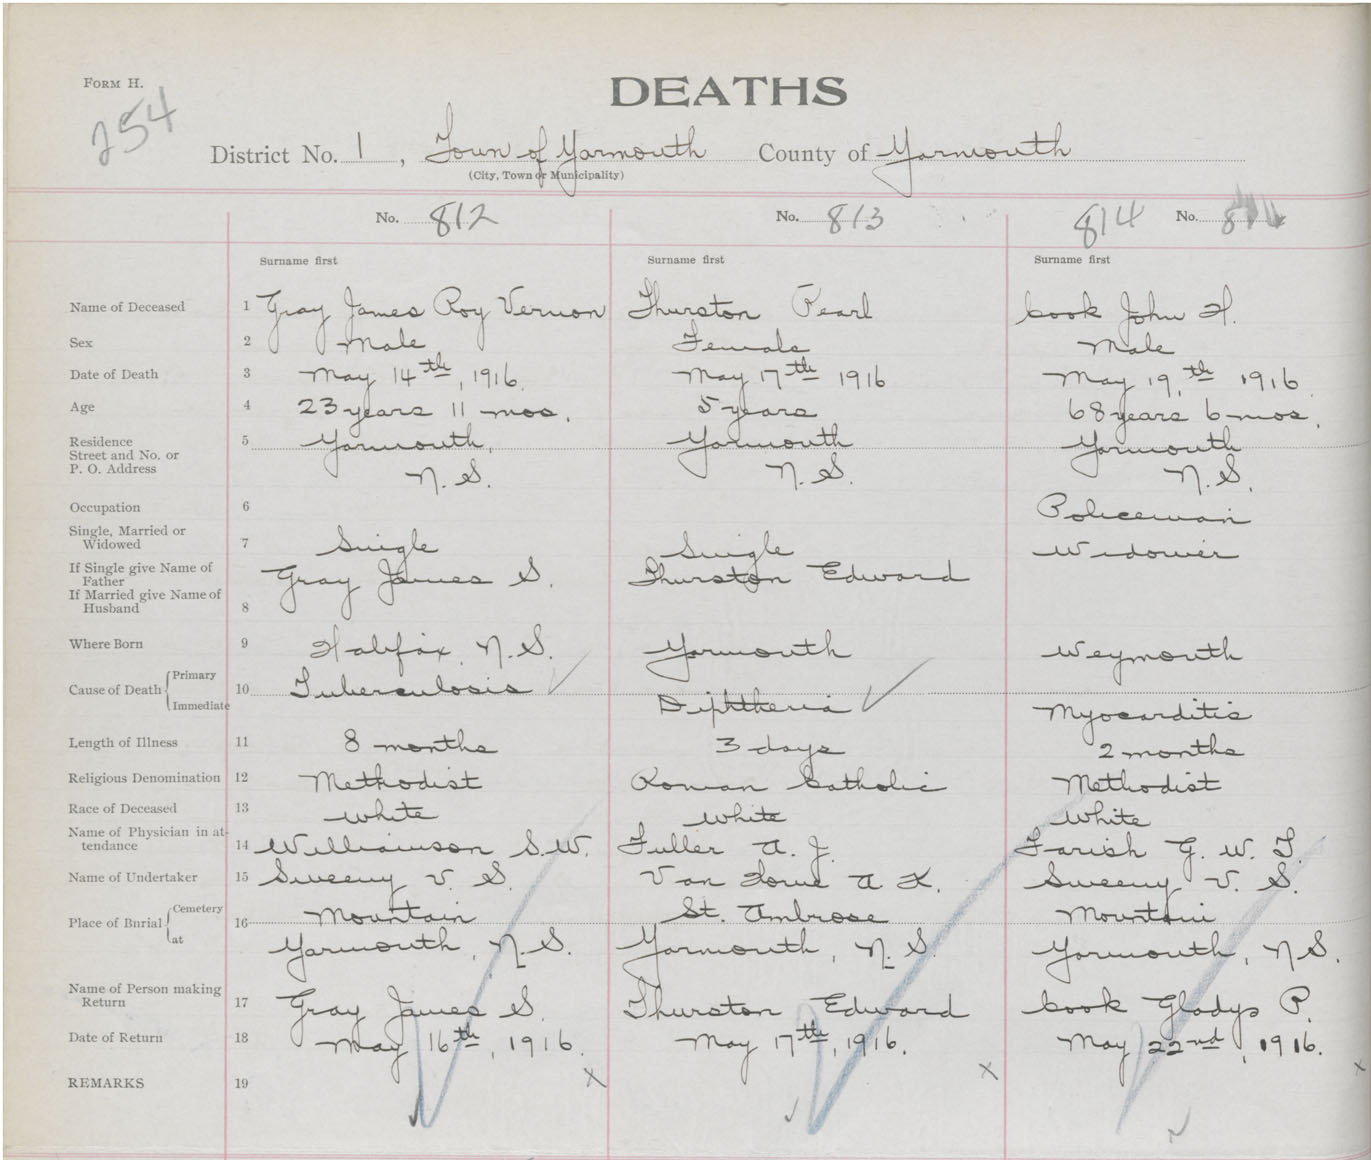 FORM H.
DEATHS
254
District No. 1, Town of Yarmouth County of Yarmouth
(City, Town or Municipality)
No. 812 No. 813 814 No.
Surname first Surname first Surname first
Name of Deceased 1 Gray James Roy Vernon Thurston Pearl Cook John H.
Sex 2 Male Female Male
Date of Death 3 May 14th, 1916. May 17th 1916 May 19th 1916
Age 4 23 years 11 mos. 5 years 68 years 6 mos.
Residence 5 Yarmouth, Yarmouth Yarmouth
Street and No. or
P. O. Address N. S. N. S. N. S.
Occupation 6 Policeman
Single, Married or
Widowed 7 Single Single Widower
If Single give Name of
Father Gray James S. Thurston Edward
If Married give Name of
Husband 8
Where Born 9 Halifax, N. S. Yarmouth Weymouth
Primary
Cause of Death 10 Tuberculosis Diphtheria Myocarditis
Immediate
Length of Illness 11 8 months 3 days 2 months
Religious Denomination 12 Methodist Roman Catholic Methodist
Race of Deceased 13 White White White
Name of Physician in at-
tendance 14 Williamson S. W. Fuller A. J. Farish G. W. T.
Name of Undertaker 15 Sweeny V. S. Van Horne A K. Sweeny V. S.
Cemetery
Place of Burial 16 Mountain St. Ambrose Mountain
at Yarmouth, N. S. Yarmouth, N. S. Yarmouth, N S.
Name of Person making
Return 17 Gray James S. Thurston Edward Cook Gladys P.
Date of Return 18 May 16th, 1916. May 17th, 1916. May 22nd, 1916.
REMARKS 19 x x x